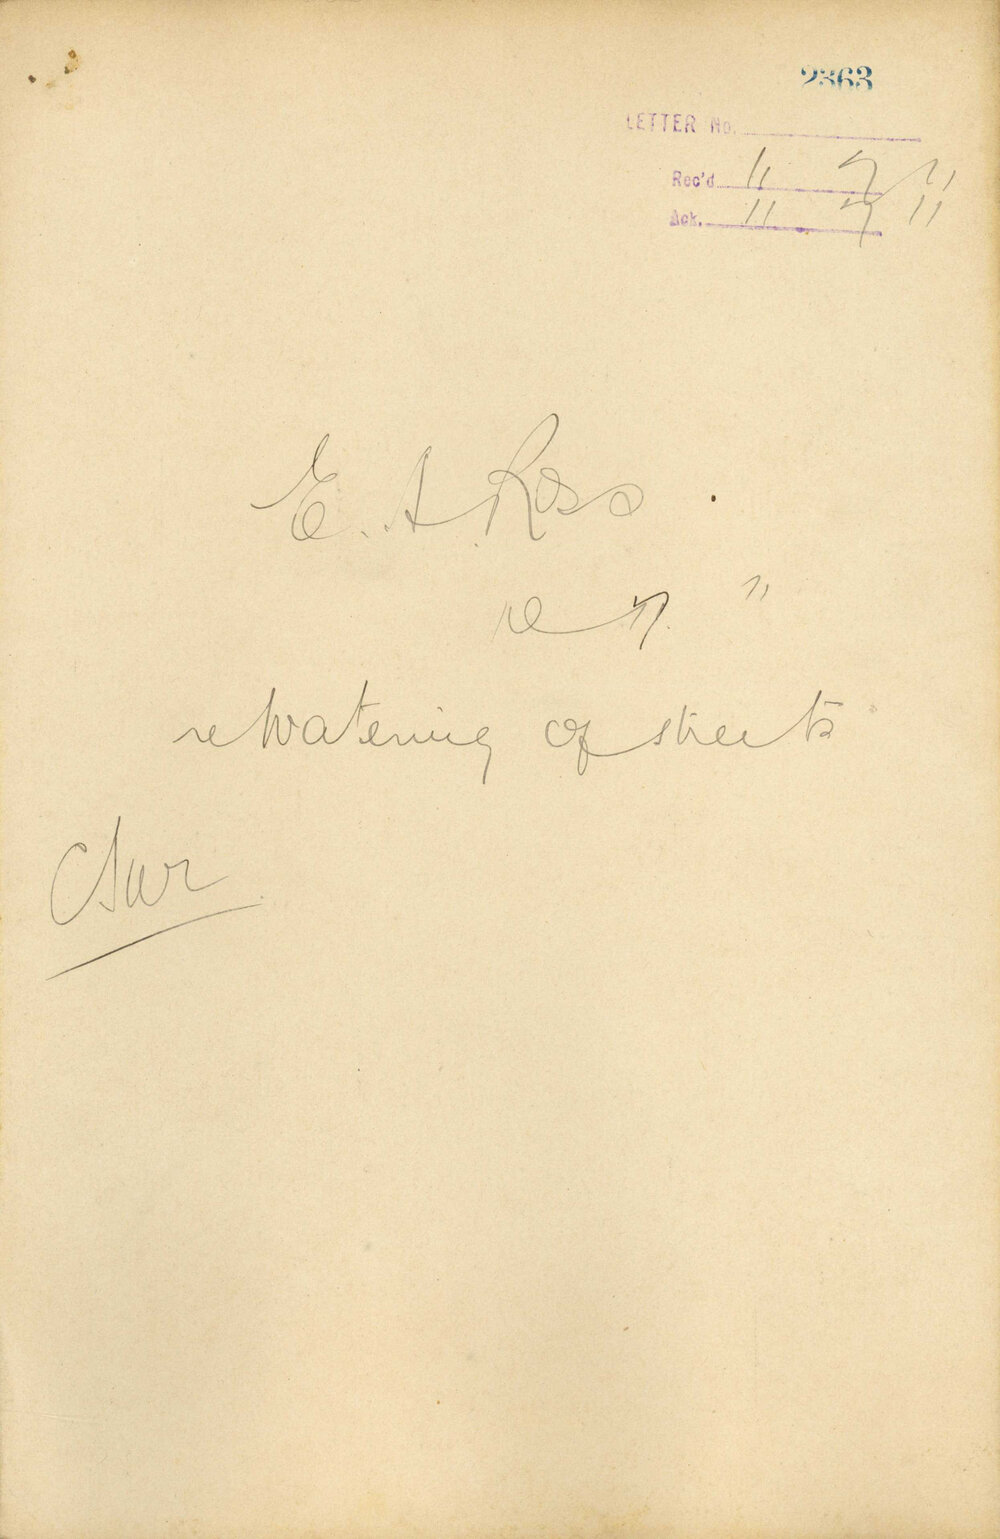 2363
LETTER No.
Rec'd 11 7 11
Ack. 11 7 11
E. A. Ross
7. 11
re Watering of streets